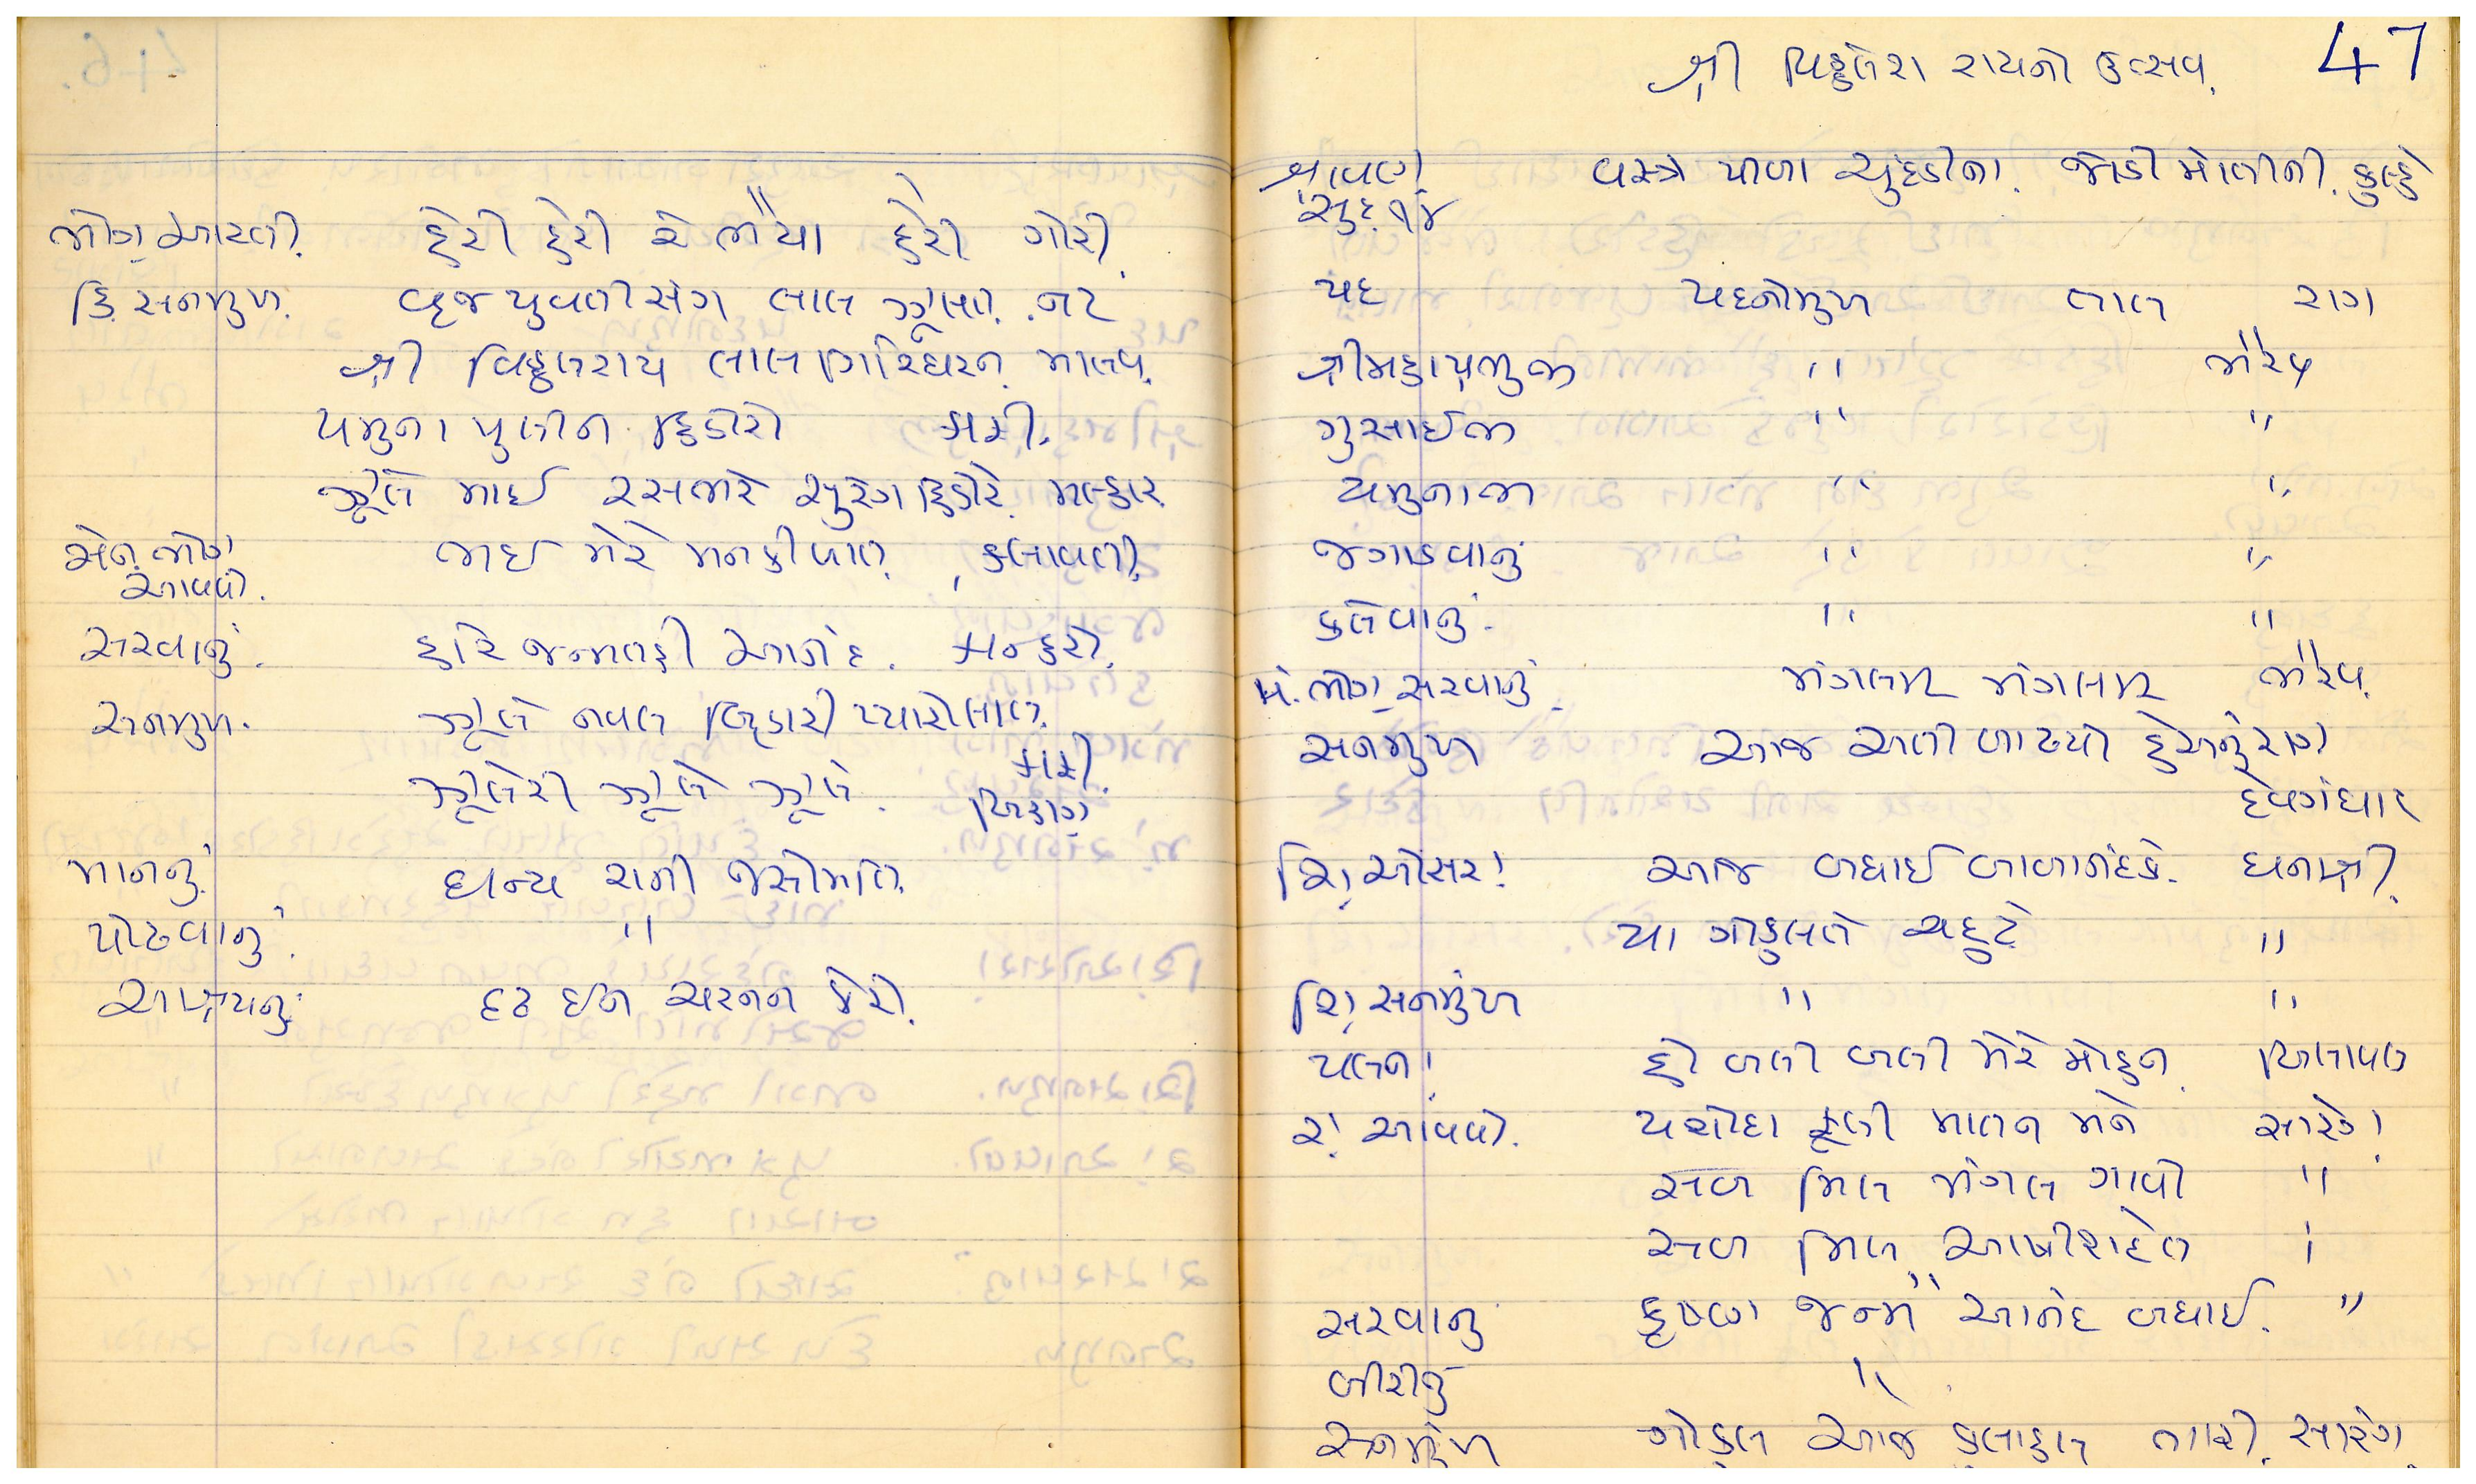 ભોગ આરતી. હેરી હેરી રે ભૈયા હેરી ગોરી.
હિં. સનમુખ. વૃજ યુવતી સંગ લાલ ઝૂલત. નટ
શ્રી વિઠ્ઠલરાય લાલ ગિરિધરન. માલવ.
યમુના પુલીન હિંડોરો
ઝૂલે માઈ રસભરે સુરંગ હિંડોરે. મલ્હાર
સેન ભોગ ભઈ મેરે મનકી બાત.
આવવો.
સરવાનું. હરિ જન્મતહી આનંદ. કાન્હરો.
સનમુખ. ઝૂલે નવલ બિહારી પ્યારોલાલ.
ઝૂલેરી ઝૂલે ઝૂલે. બિહાગ
માનનું. ધન્ય રાની જસોમતિ.
પોઢવાનું. "
આશ્રયનું. દૃઢ ઈન ચરનન કેરો.
47
શ્રી વિઠ્ઠલેશ રાયનો ઉત્સવ.
શ્રાવણ વસ્ત્રો પીળા ચુંદડીના. જોડી મોતીની. કુલ્હે
સુદ. ૧૪
પદ પદનોમુખ તાલ રાગ
શ્રીમહાપ્રભુજી " ભૈરવ
ગુસાઈજી " "
યમુનાજી " "
જગાડવાનું " "
કલેવાનું. " "
મં. ભોગ સરવાનું. મંગલમ્ મંગલમ્ ભૈરવ.
સનમુખ આજ અતી બાઢ્યો હેઅનુરાગ
દેવગંધાર
શૃં. ઓસરા આજ બધાઈ બાબાનંદકે. ધનાશ્રી.
યા ગોકુલકે ચહુટે "
શૃં. સનમુખ " "
પલના હો બલી બલી મેરે મોહન. બિલાવલ
રા. આવવો. યશોદા ફૂલી માતન મને સારંગ
સબ મિલ મંગલ ગાવો "
સબ મિલ આશીશદેત
સરવાનું કૃષ્ણ જન્મ આનંદ બધાઈ. "
બીરીનું "
સનમુખ ગોકુલ આજ કુલાહલ ભારી. સારંગ